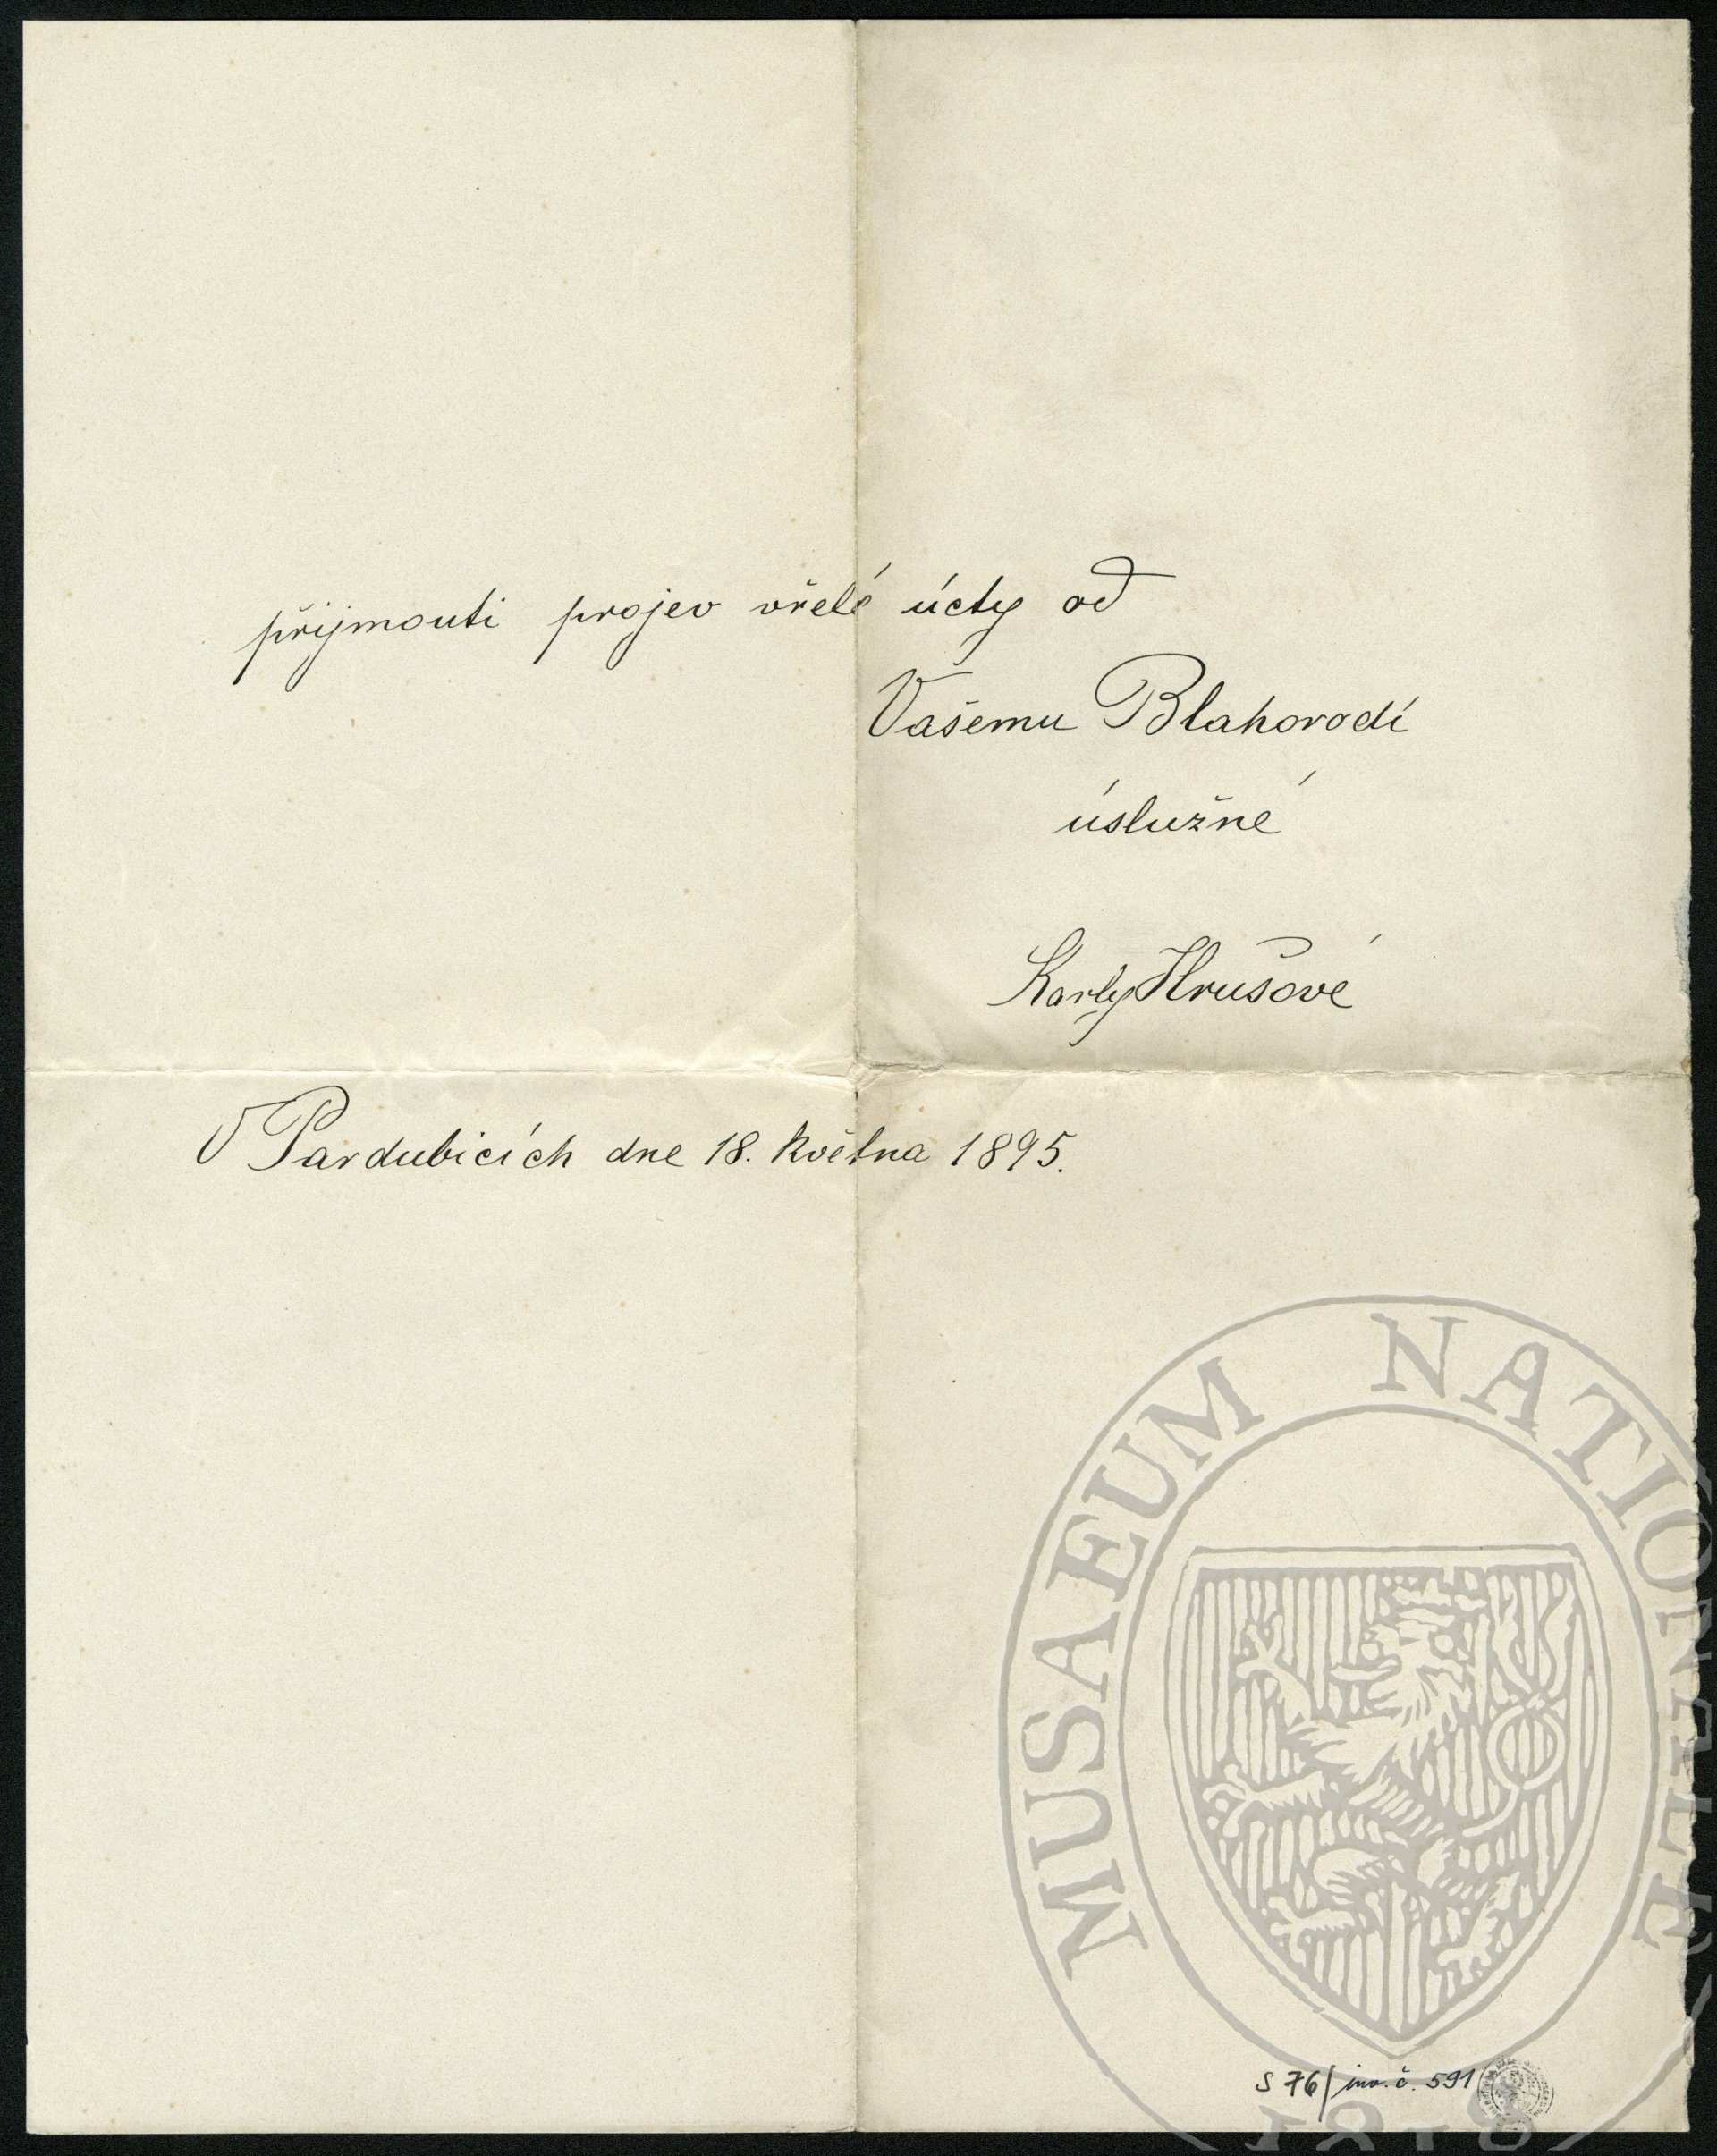 přijmouti projev vřelé úcty od
Vašemu Blahorodí
úslužné
Karly Hrušové
V Pardubicích dne 18. května 1895.
MUSAEUM NATIONALE
S 76/ inv. č. 591
1818